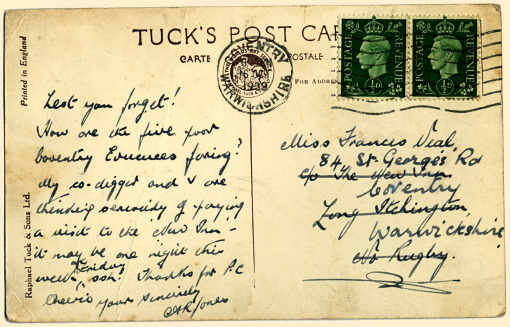 TUCK'S POST CAR
CARTE POSTALE
FOR ADDRE
COVENTRY
WARWICKSHIRE
1939
POSTAGE REVENUE
½D
POSTAGE REVENUE
½D
Printed in England
Raphael Tuck & Sons Ltd.
Lest you forget!
How are the five poor
Coventry Evacuees faring?
My co-digger and I are
thinking seriously of paying
a visit to the New Inn -
it may be one night this
week, or Sunday, ooh! Thanks for P.C
Cheerio Yours Sincerely
Jones
Miss Frances Veal,
84 St George's Rd
c/o The New Inn
Coventry
Long Itchington
Warwickshire
Nr Rugby.